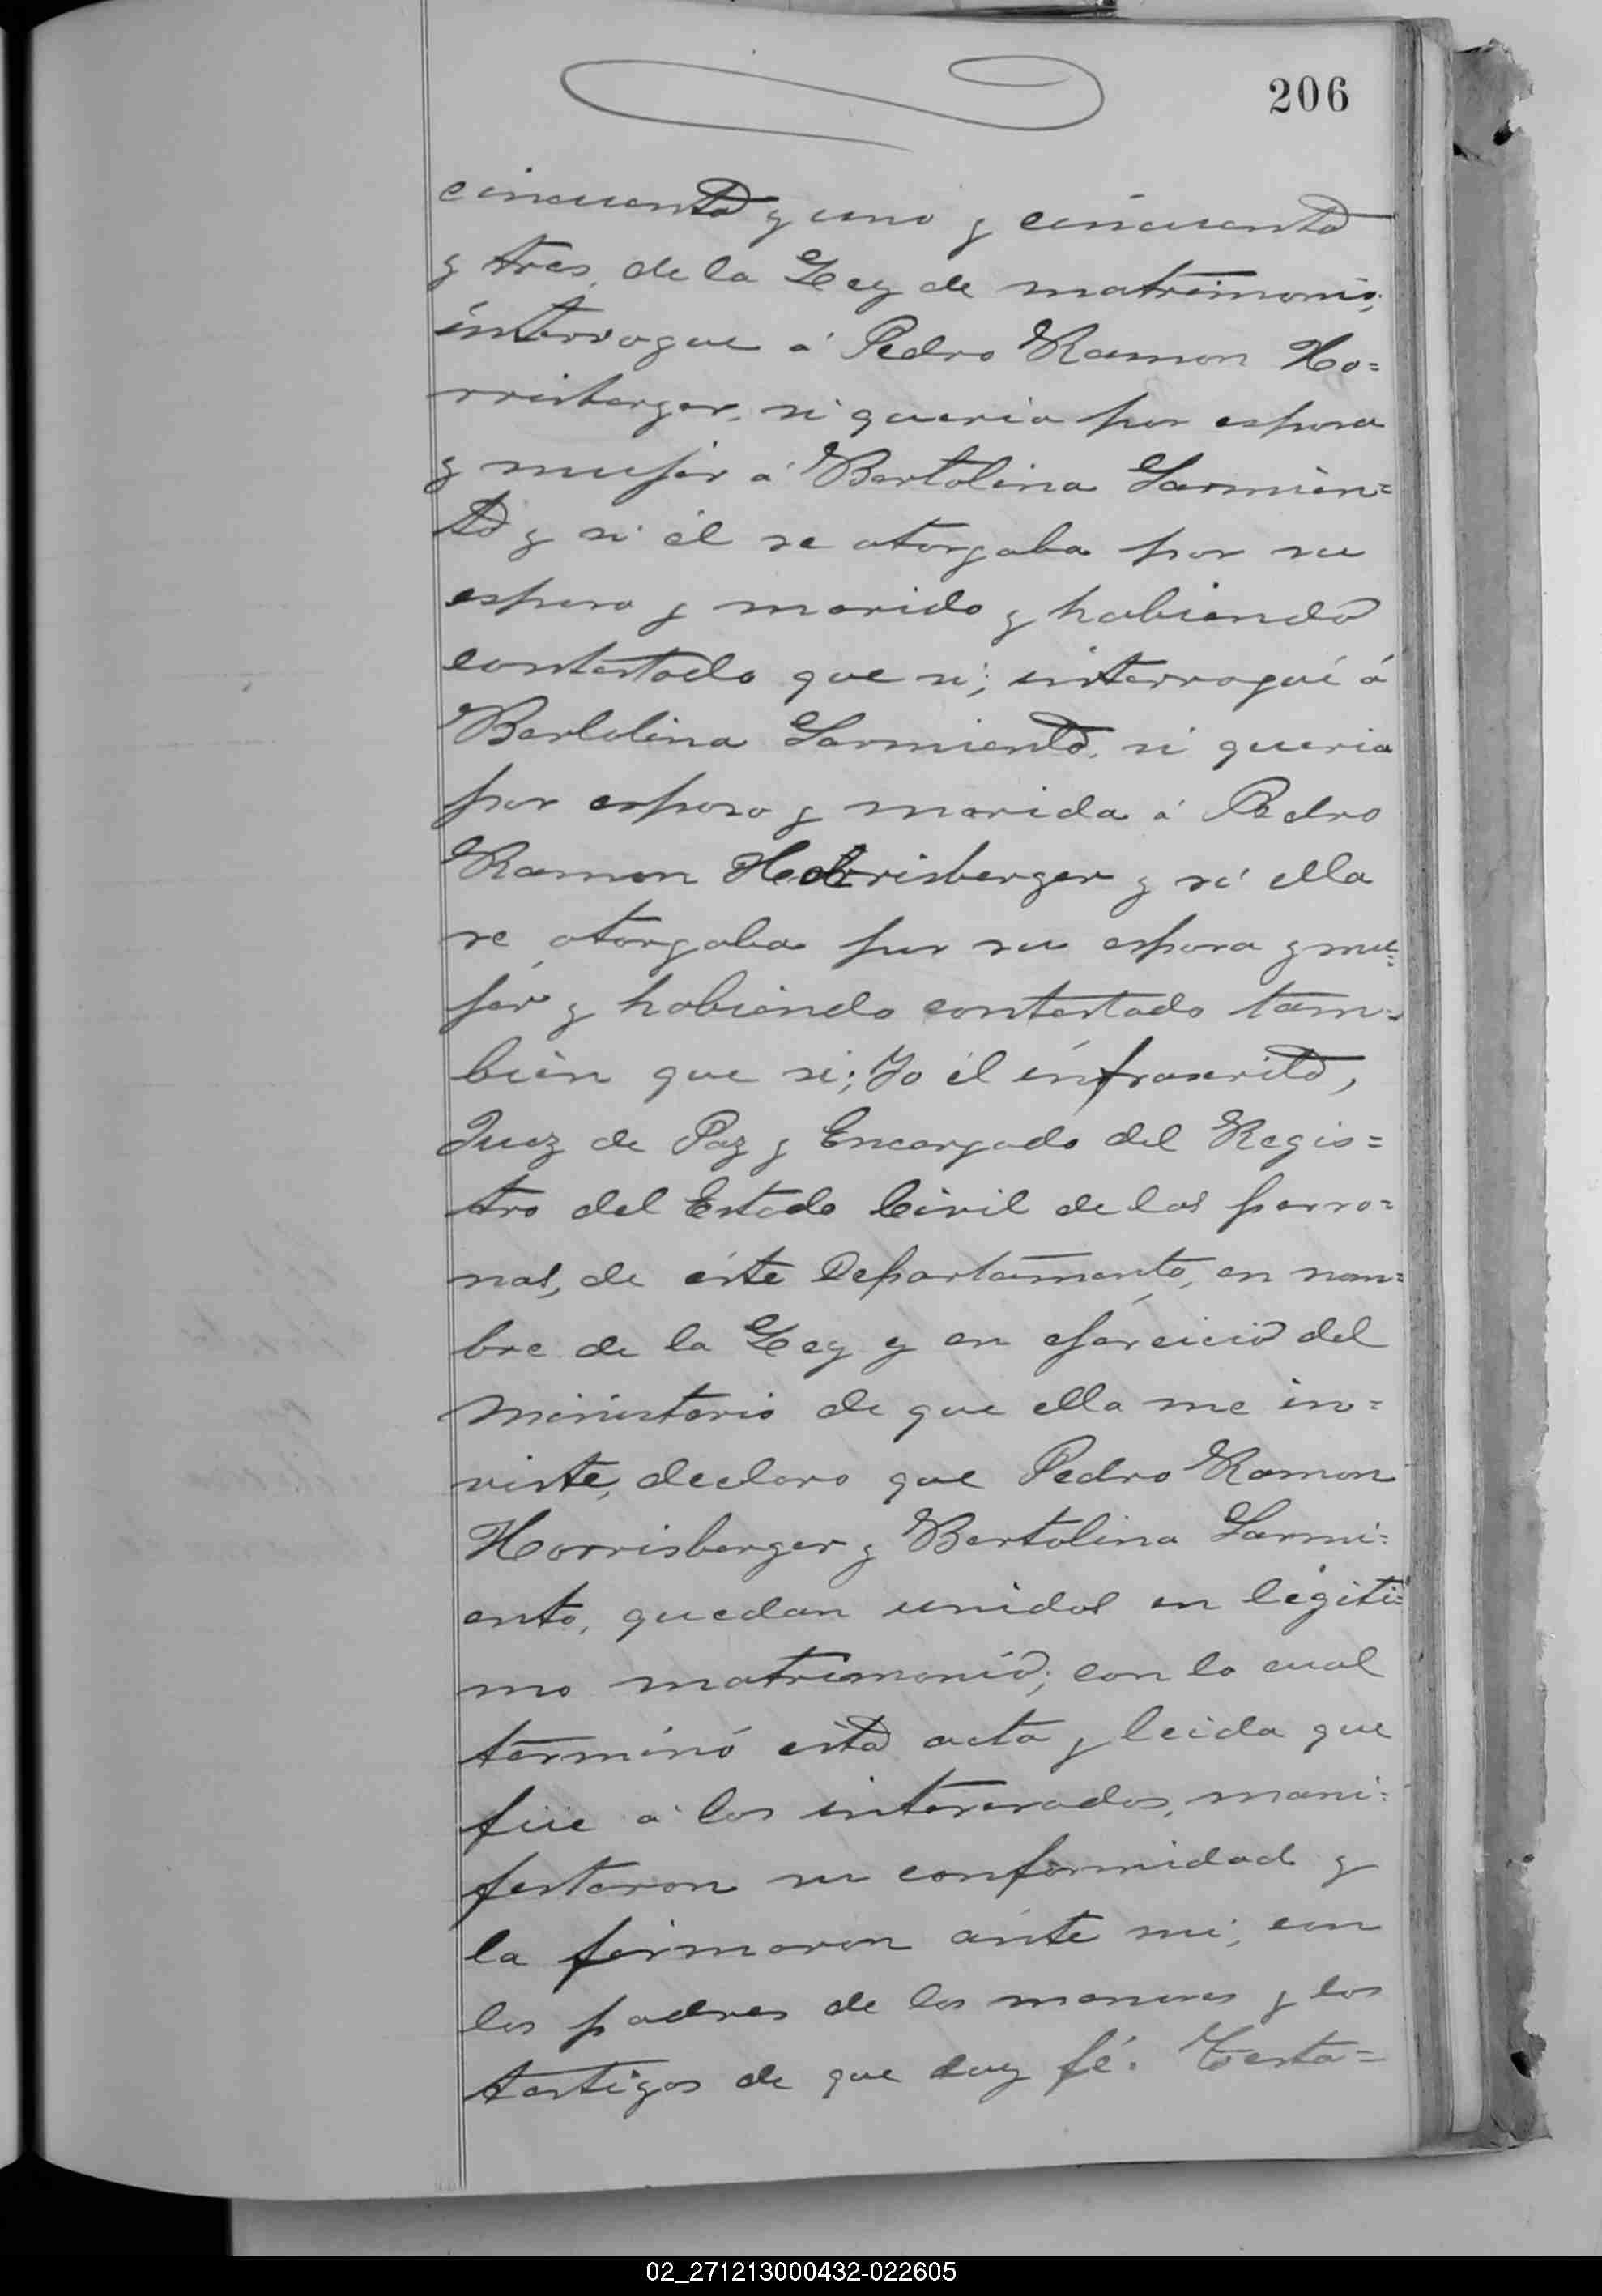 206
cincuenta y uno y cincuenta
y tres, de la Ley de matrimonio,
interrogue á Pedro Ramon Ho=
rrisberger, si queria por esposa
y mujer á Bertolina Sarmien=
to y si él se otorgaba por su
esposo y marido y habiendo
contestado que si; interrogué á
Bertolina Sarmiento, si queria
por esposo y marida á Pedro
Ramon Horrisberger y si ella
se otorgaba por su esposa y mu=
jer y habiendo contestado tam=
bien que si; Yo él infrascrito,
Juez de Paz y Encargado del Regis=
tro del Estado Civil de las perso=
nas, de éste Departamento, en nom=
bre de la Ley y en ejercicio del
ministerio de que ella me in=
viste, declaro que Pedro Ramon
Horrisberger y Bertolina Sarmi=
ento, quedan unidos en légiti=
mo matrimonio; con lo cual
términó ésta acta y leida que
fué á los interesados, mani=
festaron su conformidad y
la firmaron ánte mi, con
los padres de los menores y los
testigos de que doy fé. Testa=
02_271213000432-022605